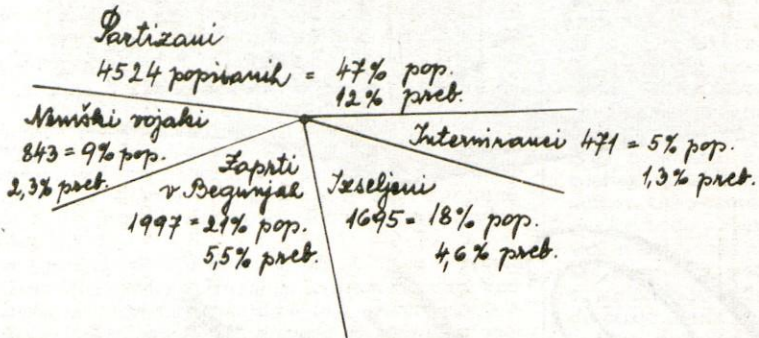 Partizani
4524 popisanih = 47% pop.
12% preb.
Nemški vojaki
843 = 9% pop.
2,3% preb.
Zaprti
v Begunjah
1997 = 21% pop.
5,5% preb.
Izseljeni
1695 = 18% pop.
4,6% preb.
Interniranci 471 = 5% pop.
1,3% preb.